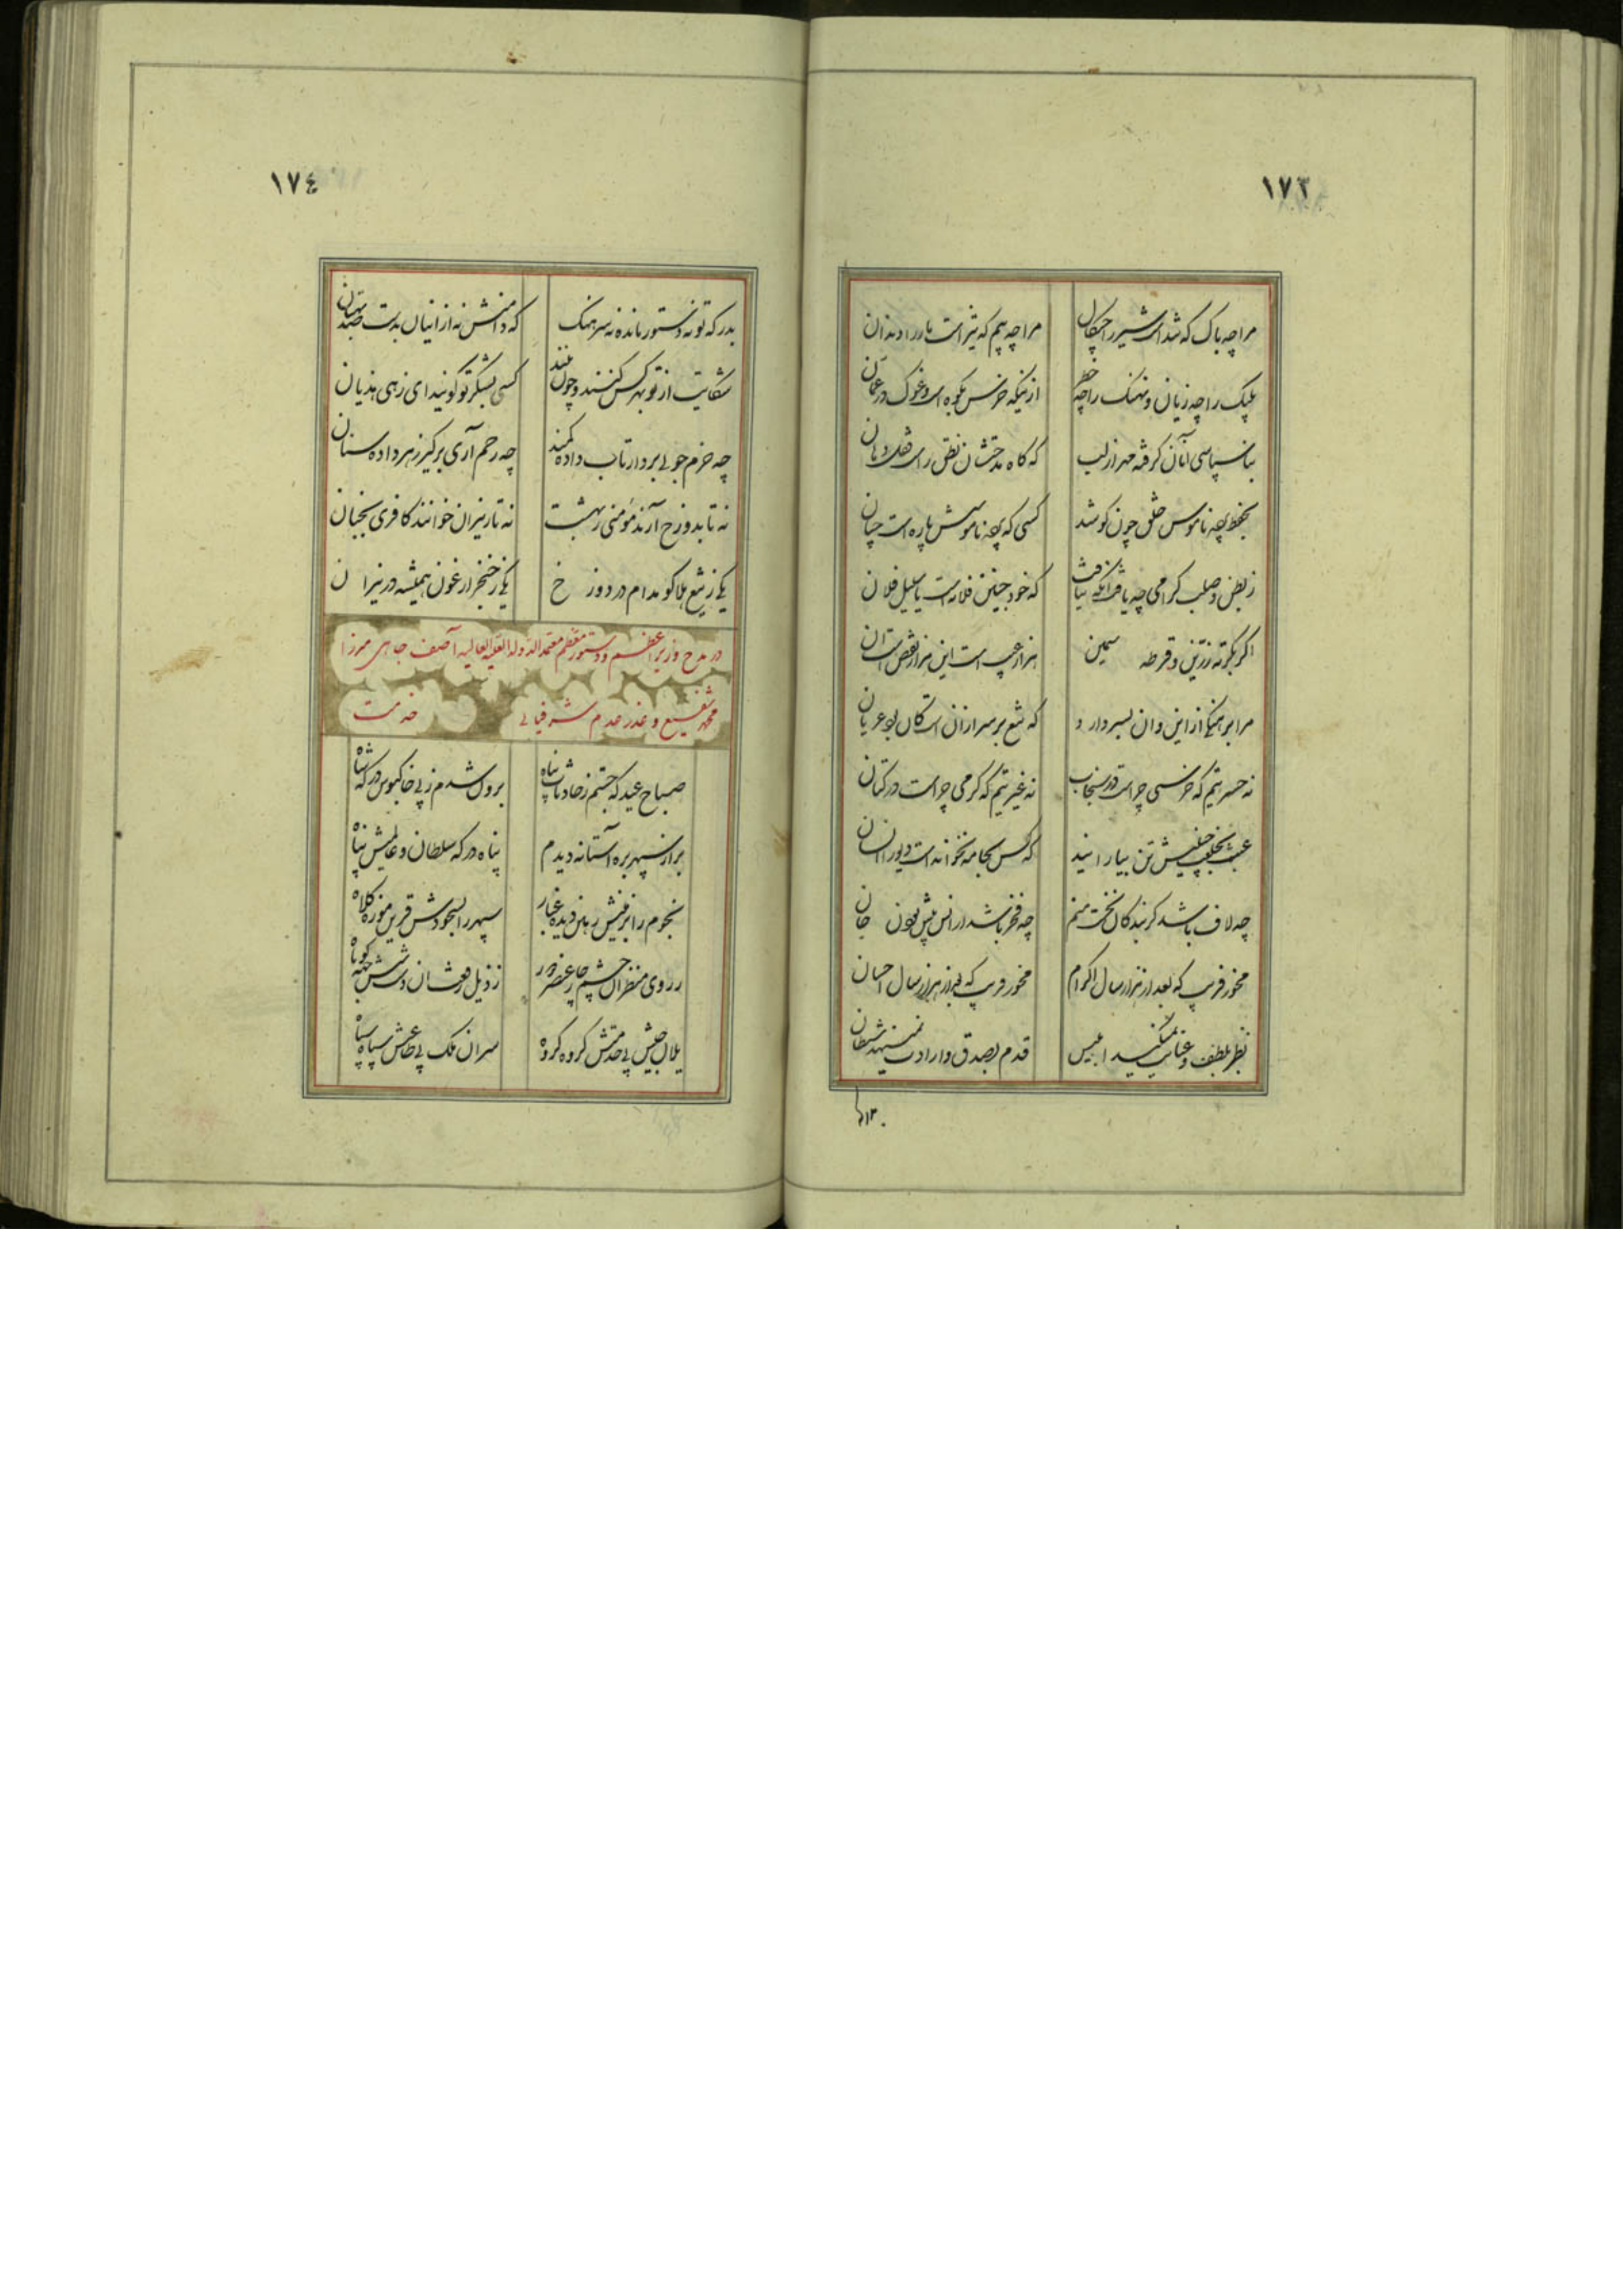 ١٧٣
مرا چه باک که شد است شیر را چنگال
مرا چه بیم که تیز است مار را دندان
پلنگ را چه زیان و نهنگ را چه خطر
ازینکه خرس بکوه است و غوک در عمان
بناسپاسی آنان گرفته مهر از لب
که گاه مدحتشان نطق راست قفل دهان
بحفظ بچه ناموس خلق چون کوشد
کسی که بچه ناموسش پاره است چنان
ز بطن و صلب گرامی چه یافت آنکه نیافت
که خود جنین فلانه است یا سلیل فلان
اگر بکرته زرین و قرطه سیمین
هزار عیب است این هزار نقص است آن
مرا برهنگی از این و آن بسر دارد
که تیغ بر سر ازان است کان بود عریان
نه حسرتیم که خرسی چراست در سنجاب
نه غیرتیم که کرمی چراست در کتان
عبث بجلب خویش تن بیارایند
که کس بجامه نخوانده است دیو را انسان
چه لاف باشد کز بندگان بخت منم
چه فخر باشد از انس پیش بودن جان
مخور فریب که بعد از هزار سال اکرام
مخور فریب که پس از هزار سال احسان
نظر بلطف و عنایت نمیکند ابلیس
قدم بصدق و ارادت نمینهد شیطان
١٧٤
بدرگه تو نه دستور مانده نه سرهنگ
که دامنش نه از اینان بدست صد بهتان
شکایت از تو بهر کس کنند و چون بینند
کسی بشکر تو گویند ای زهی هذیان
چه خرم جویی بردار تاب داده کمند
چه رحم آری برگیر زهر داده سنان
نه تا بدوزخ آرند مؤمنی ز بهشت
نه تا ز نیران خوانند کافری بجنان
یکی ز تیغ هلاکو مدام در دوزخ
یکی ز خنجر ارغون همیشه در نیران
در مدح وزیر اعظم و دستور معظم معتمد الدوله العلیه العالیه آصف جاهی میرزا
محمد شفیع و عذر عدم شرفیابی خدمت
صباح عید که جستم ز حادثات پناه
برون شدم ز پی خاکبوس درگه شاه
بر از سپهر بره آستانه دیدم
پناه درگه سلطان و عالمیش پناه
نجوم را بزمینش رهین دیده غبار
سپهر را بسجودش قرین موزه کلاه
ز روی منظرشان چشم چار عنصر دور
ز ذیل رفعتشان دست شش جهت کوتاه
یلال جیش پی خدمتش گروه گروه
سران ملک پی طاعتش سپاه سپاه